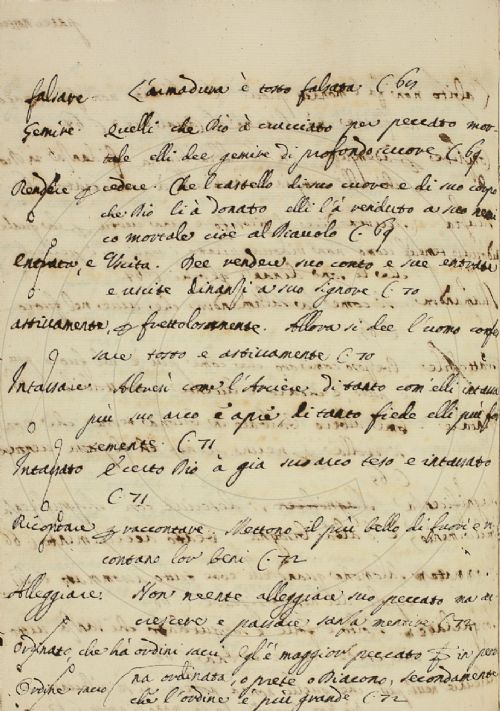 falsare L'armadura è tosto falsata C. 69
Gemire Quelli che Dio à crucciato per peccato mor-
tale elli dee gemire di profondo cuore C. 69
Rendere p cedere. Che l castello di suo cuore e di suo corpo
che Dio li à donato elli l'à renduto a suo nemi
co mortale cioè al Diavolo C. 69
Entrata, e Uscita. Dee rendere suo conto e sue entrate
e uscite dinanzi a suo signore C. 70
astivamente, p frettolosamente. Allora si dee l'uomo confes
sare tosto e astivamente C. 70
Intassare Altresì com l'Arciere di tanto com'elli intassa
più suo arco e apre di tanto fiede elli più for
temente. C. 71
Intassato E certo Dio à già suo arco teso e intassato
C. 71
Ricontare p raccontare. Mettono il più bello di fuori e ri
contano lor beni C. 72
Alleggiare Non neente alleggiare suo peccato ma ac
crescere e passare sansa mentire C. 72
ordinato, che hà ordini sacri Gl'è maggior peccato in perso
Ordine sacro na ordinata, o prete o Diacono, secondamente
che l'ordine è più grande C. 72